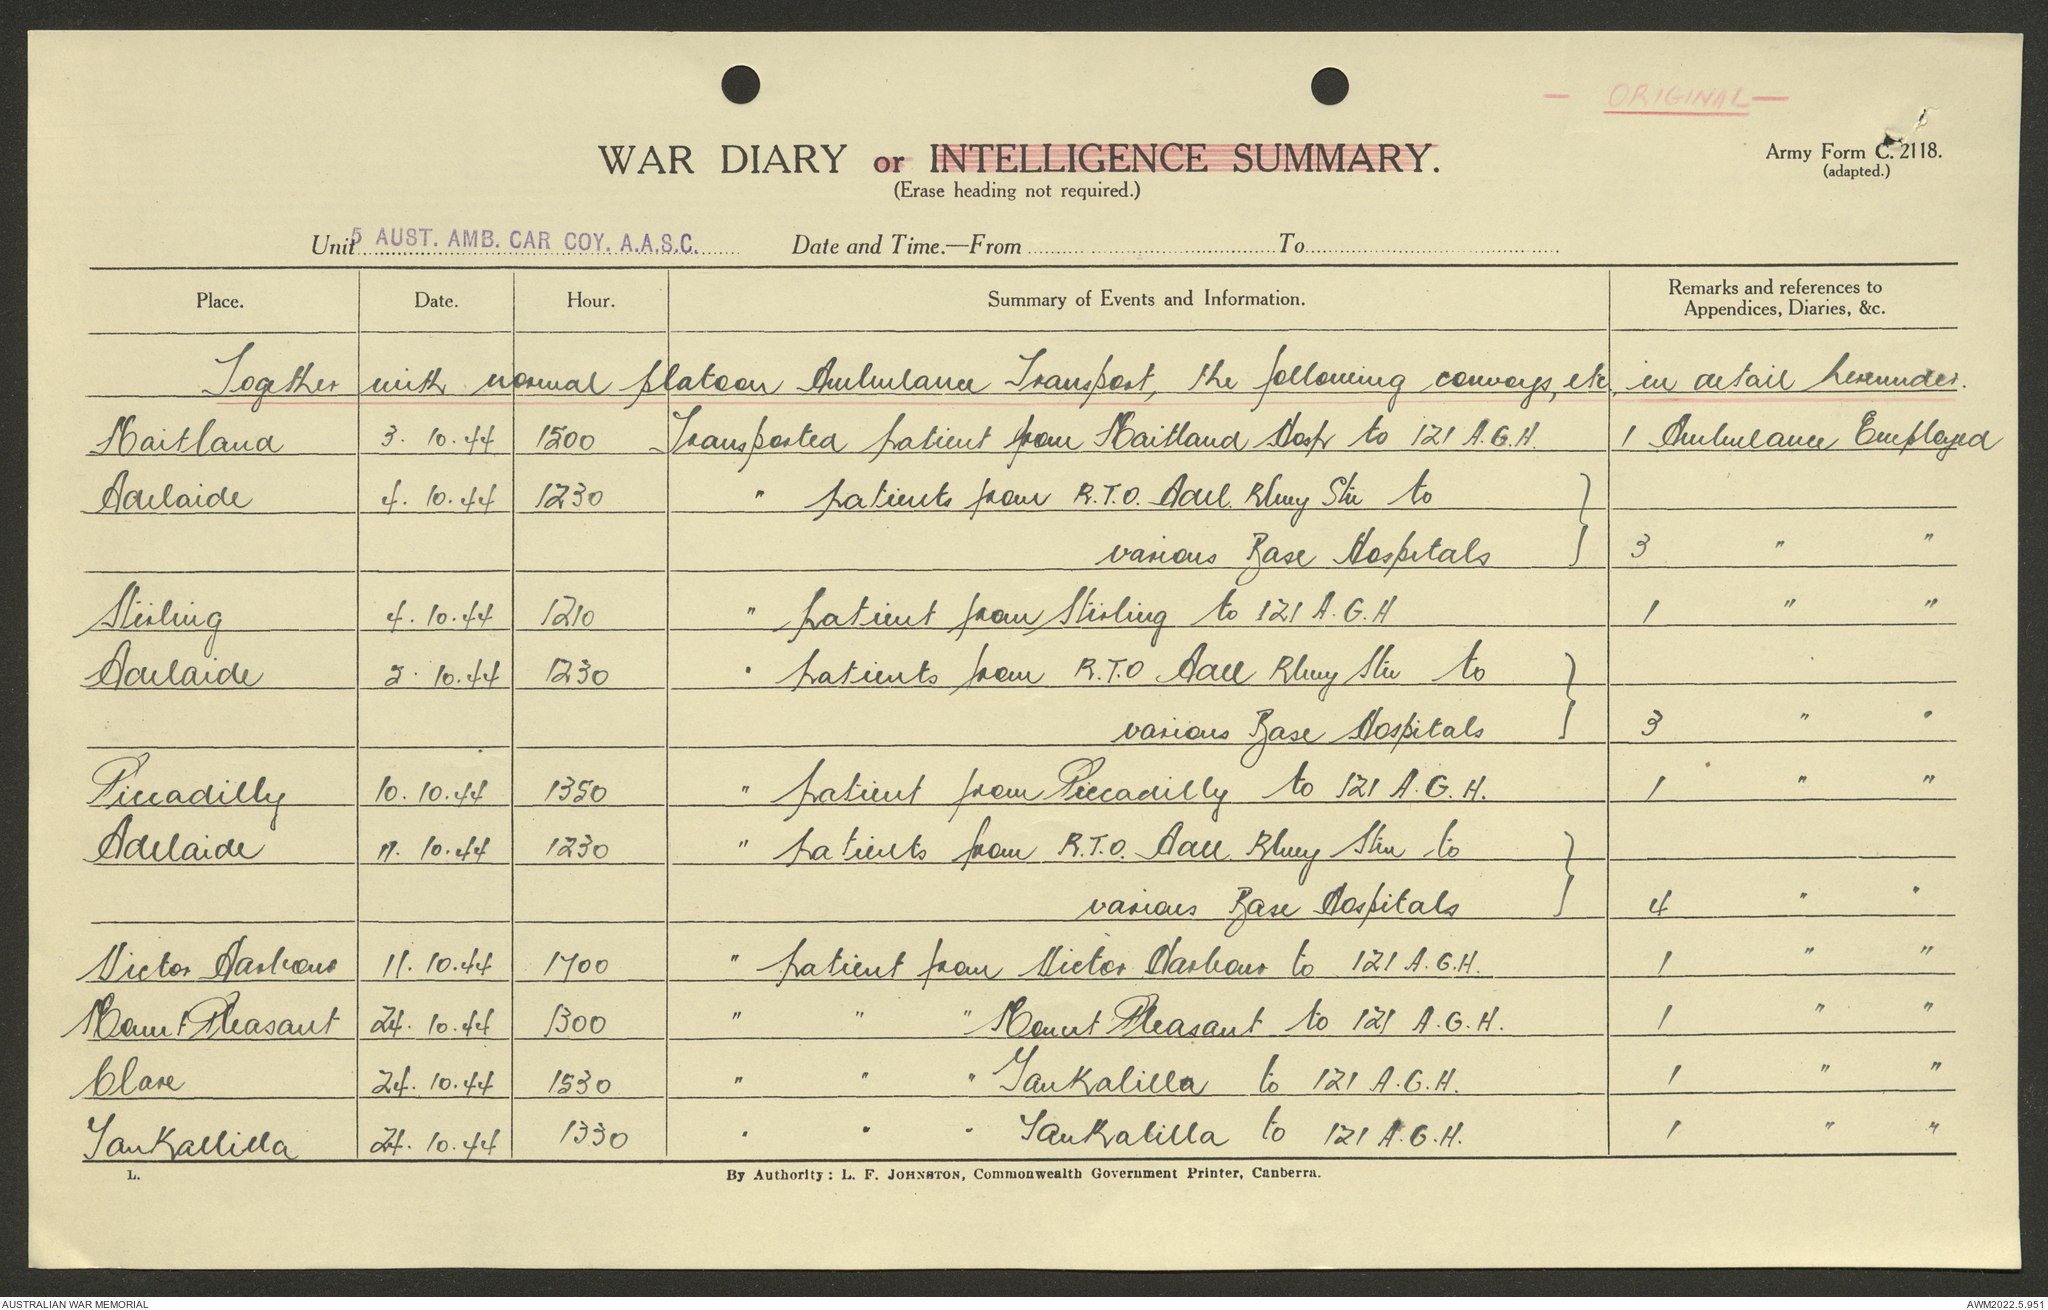 — ORIGINAL —
WAR DIARY or INTELLIGENCE SUMMARY.
(Erase heading not required.)
Army Form C. 2118.
(adapted.)
Unit 5 AUST. AMB. CAR COY. A.A.S.C. Date and Time.—From To
Place. Date. Hour. Summary of Events and Information. Remarks and references to
Appendices, Diaries, &c.
Together with normal platoon Ambulance Transport, the following convoys, etc, in detail hereunder.
Maitland 3. 10. 44 1500 Transported patient from Maitland Hosp to 121 A.G.H. 1 Ambulance Employed
Adelaide 4. 10. 44 1230 " patients from R.T.O. Adel. Rlwy Stn to }
various Base Hospitals 3 " "
Stirling 4. 10. 44 1210 " patient from Stirling to 121 A.G.H 1 " "
Adelaide 10. 44 1230 " patients from R.T.O Adel Rlwy Stn to }
various Base Hospitals 3 " "
Piccadilly 10. 10. 44 1350 " patient from Piccadilly to 121 A.G.H. 1 " "
Adelaide 11. 10. 44 1230 " patients from R.T.O. Adel. Rlwy Stn to }
various Base Hospitals 4 " "
Victor Harbour 11. 10. 44 1700 " patient from Victor Harbour to 121 A.G.H. 1 " "
Mount Pleasant 24. 10. 44 1300 " " " Mount Pleasant to 121 A.G.H. 1 " "
Clare 24. 10. 44 1530 " " " Yankalilla to 121 A.G.H. 1 " "
Yankallilla 24. 10. 44 1330 " " " Yankalilla to 121 A.G.H. 1 " "
L. By Authority: L. F. JOHNSTON, Commonwealth Government Printer, Canberra.
AUSTRALIAN WAR MEMORIAL AWM2022.5.951